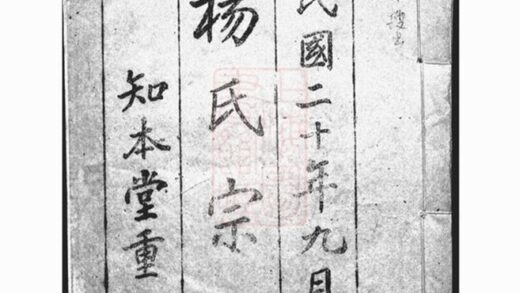 民國二十年九月
楊氏宗
知本堂重